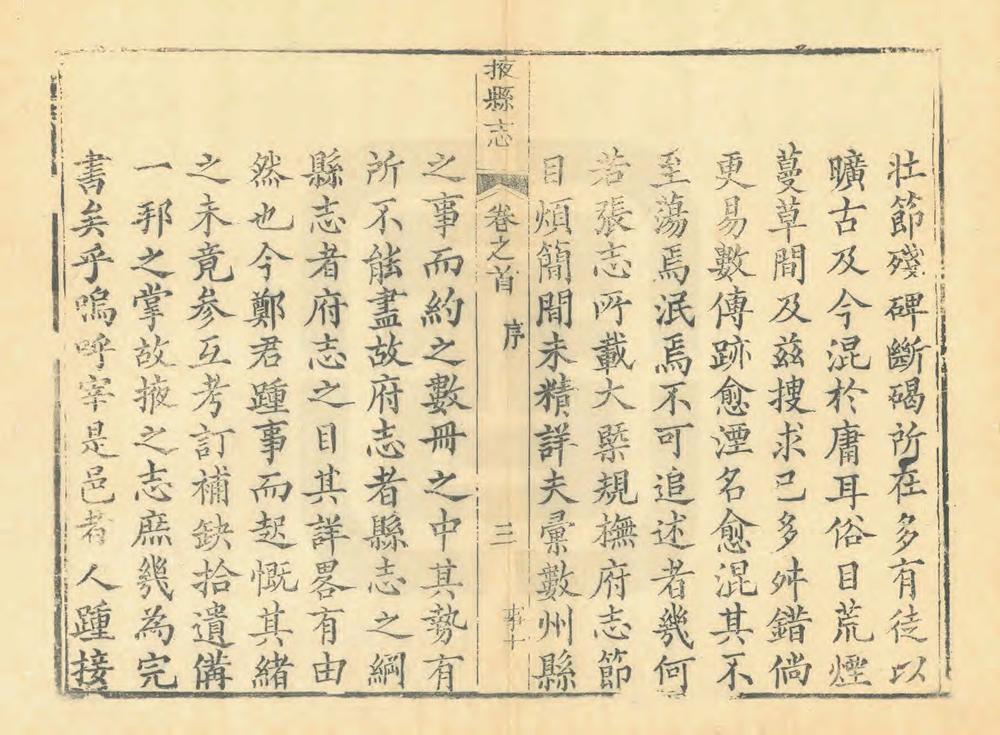 壯節殘碑斷碣所在多有徒以
曠古及今混於庸耳俗目荒煙
蔓草間及茲搜求已多舛錯倘
更易數傳跡愈湮名愈混其不
至蕩焉泯焉不可追述者幾何
若張志所載大槩規撫府志節
目煩簡間未精詳夫彙數州縣
掖縣志
卷之首
序
三
之事而約之數冊之中其勢有
所不能盡故府志者縣志之綱
縣志者府志之目其詳畧有由
然也今鄭君踵事而起慨其緒
之未竟參互考訂補缺拾遺備
一邦之掌故掖之志庶幾為完
書矣乎嗚呼宰是邑者人踵接